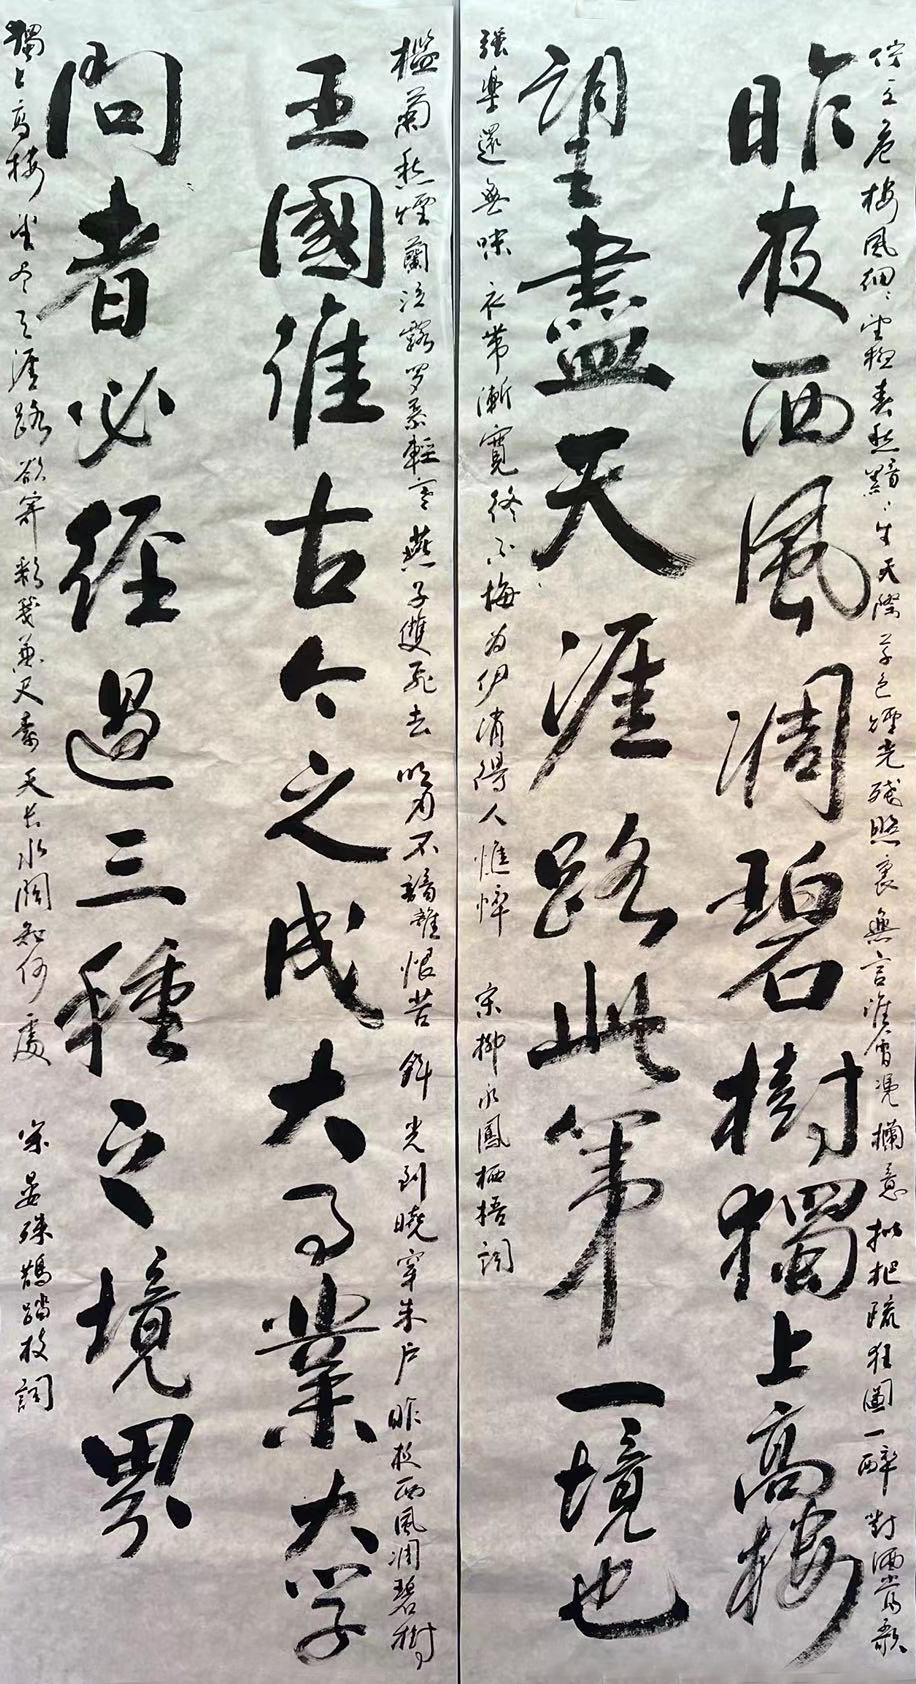 佇立危樓風細〻望極春愁黯〻生天際草色煙光殘照裏無言誰會憑欄意擬把疏狂圖一醉對酒當歌
昨夜西風凋碧樹獨上高樓
望盡天涯路此第一境也
強樂還無味衣帶漸寬終不悔為伊消得人憔悴 宋柳永鳳栖梧詞
檻菊愁煙蘭泣露罗幕輕寒燕子雙飛去明月不諳離恨苦斜光到曉穿朱戶昨夜西風凋碧樹
王國維古今之成大事業大學
問者必經過三種之境界
獨上高樓望尽天涯路欲寄彩箋兼尺素天長水闊知何處 宋晏殊鵲踏枝詞